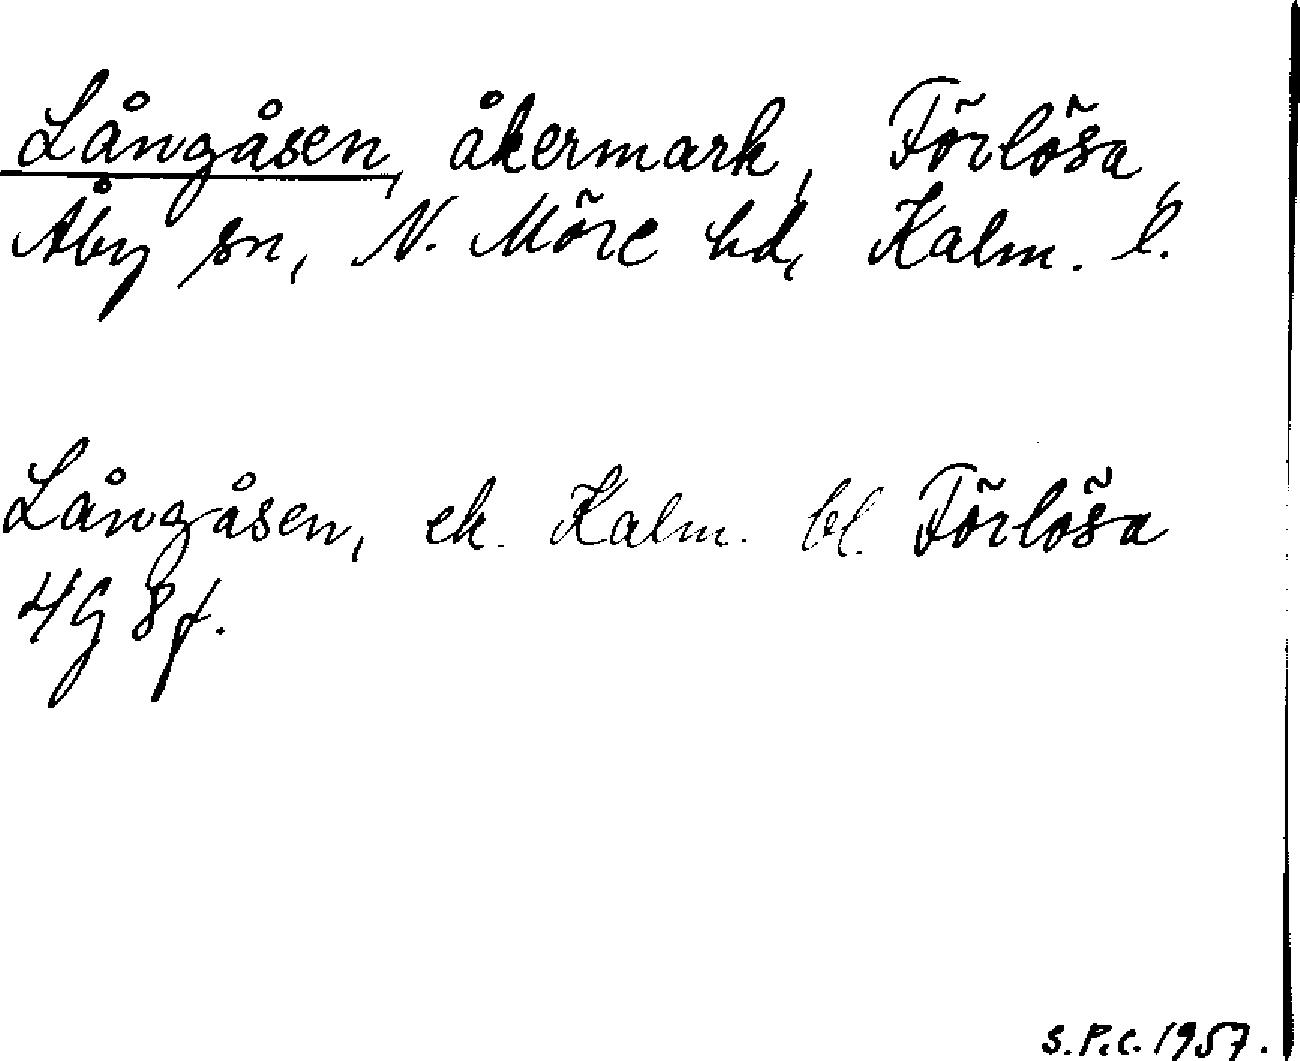 Långåsen, åkermark, Förlösa,
Åby sn, N. Möre hd, Kalm. l.
Långåsen, ek. Kalm. bl. Förlösa
4G 8f.
S.P.C. 1957.